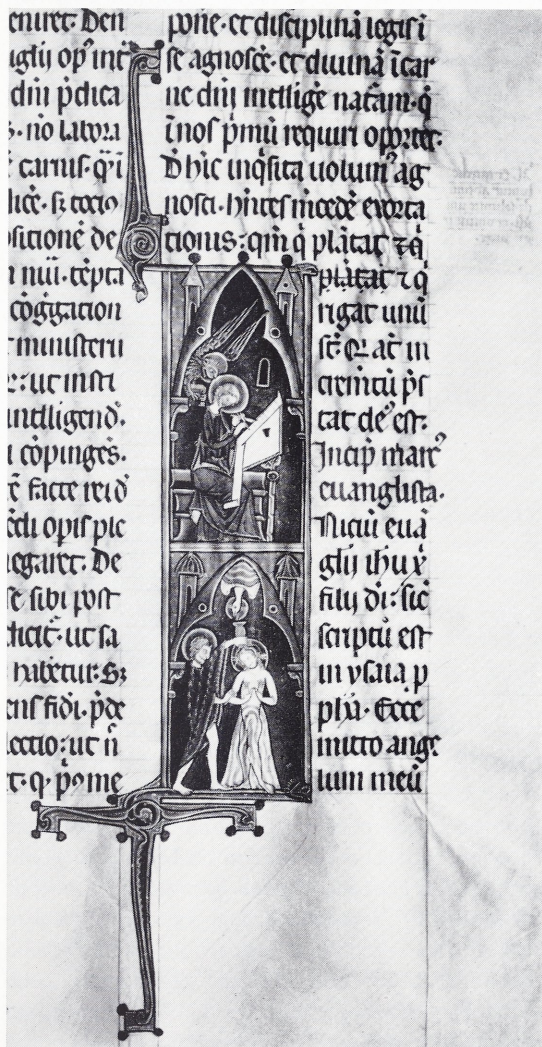 eniret. Den
iglij op᷒ int
diu p̄dica
s. nō labora
carnis. q̄ i
sitionē de
cōg̃gation
ministerii
ut insti
intelligend᷒.
cōpingēs.
ecli opis plc
egaret. De
sē sibi post
dicit. ut sa
habetur. Sȝ
ens fidi. p̄de
lectio: ut n̄
t. q. p᷒ me
pone. et disciplinā legis ī
se agnosce. et diuinā ī car
ne diu intellige natām. q̄
ī nos pmū requiri oportet.
Ꝺhic inq̄sita uolum᷒ ag
nosci. hn̄tes mcede exorta
tionis: qm̄ q̄ plātat ⁊ q̄
plātat ⁊ q̄
rigat unū
st̄. Q̄ at in
cremtū p̄s
tat de᷒ est.
Incip̄ marc᷒
euanglista.
Niciū euā
glij ihu x̄
filij di: sic̄
scriptū est
in ysaia p
phā. Ecce
mitto ange
lum meū